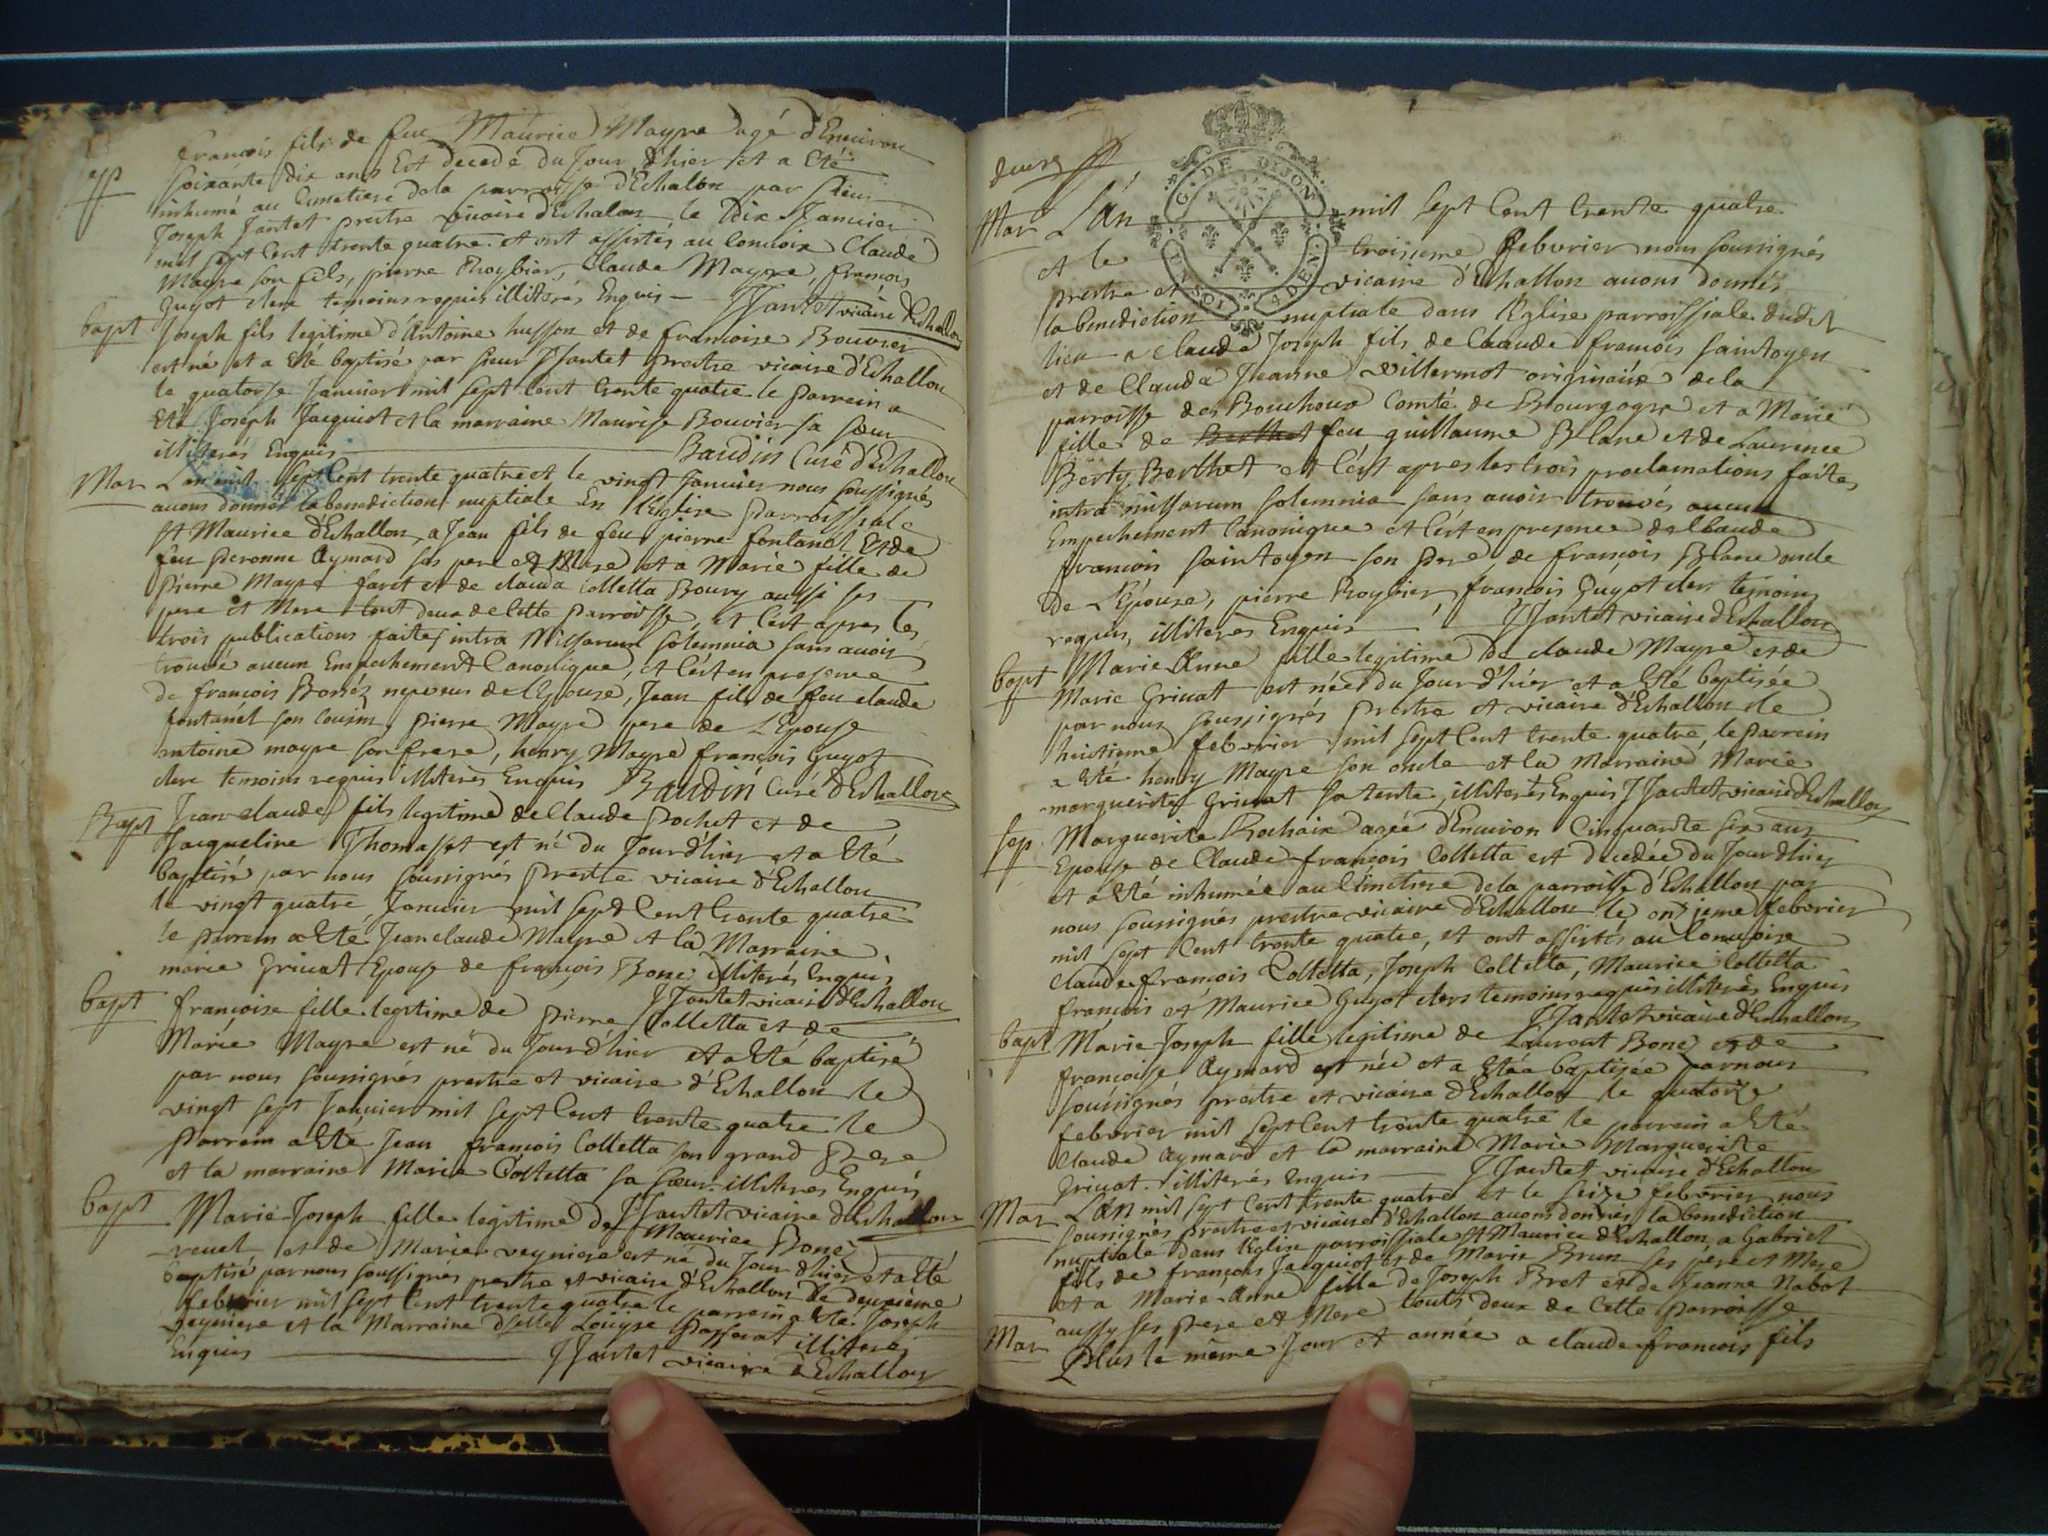 françois fils de feu Maurice Mayre agé d'Environ
sep soixante dix ans Est decedé du Jour d'hier et a Eté
inhumé au Cimetiere dela parroisse d'Echalon par sieur
Joseph Jantet prestre vicaire d'Echalon le Dix Janvier
mil sept Cent trente quatre et ont assistés au Convoix Claude
Mayre son fils, pierre Roybier, Claude Mayre, françois
Guyot clerc témoins requis illiterés Enquis - JJantet vicaire d'Echallon
bapt Joseph fils legitime d'Antoine husson et de françoise Bouvier
est né et a Eté baptisé par sieur JJantet prestre vicaire d'Echallon
le quatorse Janvier mil sept Cent trente quatre le parrein a
Eté Joseph Jacquiot et la marraine Maurise Bouvier sa sœur
illiterés Enquis Baudin Curé d'Echallon
Mar L'an mil sept Cent trente quatre et le vingt Janvier nous soussignés
avons donné la benediction nuptiale En l'Eglise parroissiale
St Maurice d'Echallon, a Jean fils de feu pierre fontanel Et de
feu peronne Aymard ses pere et Mere et a Marie fille de
pierre Mayre faret et de clauda Colletta Boury aussi ses
pere et Mere tout deux de Cette parroisse, et C'est apres les
trois publications faites intra Missarum solemnia sans avoir
trouvé aucun Empechement Canonique, et C'est en presence
de françois Bonéz nepveux de l'Epouse, Jean fils de feu claude
fontanél son cousin, pierre Mayre pere de L'Epouse
antoine mayre son frere, henry Mayre françois Guyot
clerc temoins requis illiterés Enquis Baudin Curé d'Echallon
Bapt Jean claude fils legitime de Claude Pochet et de
Jacqueline Thomasset est né du Jour d'hier et a Eté
baptisé par nous soussignés prestre vicaire d'Echallon
le vingt quatre Janvier mil sept Cent trente quatre
le parrein a Eté Jean claude Mayre et la Marraine
marie Grivat Epouse de françois Bone illiterés Enquis
JJantet vicaire d'Echallon
bapt françoise fille legitime de pierre Colletta et de
Marie Mayre est né du Jour d'hier et a Eté baptisé
par nous soussignés prestre et vicaire d'Echallon le
vingt sept Janvier mil sept Cent trente quatre le
Parrein a Eté Jean françois Colletta son grand Pere
et la marraine Maria Colletta sa sœur illiteres Enquis
JJantet vicaire d'Echallon
bapt Marie Joseph fille legitime de Maurice Bone
revel et de Marie veyniere est né du Jour d'hier et a Eté
baptisé par nous soussignés prestre et vicaire d'Echallon le deuxième
febvrier mil sept Cent trente quatre le parrein a Eté Joseph
veyniere et la Marraine dselle Louyse Passerat illiterés
Enquis JJantet vicaire d'Echallon
Mar L'An mil sept Cent trente quatre
et le troisieme febvrier nous soussignés
prestre et vicaire d'Echallon avons donnés
la benediction nuptiale dans l'Eglise parroissiale dudit
lieu a claude Joseph fils de Claude françois saintoyen
et de Clauda Jeanne villermot originaire dela
parroisse des Bouchoux Comté de Bourgogne et a Marie
fille de Berthet feu guillaume Blanc et de Laurence
Berty Berthet et C'est apres les trois proclamations faites
intra missarum solemnia sans avoir trouvés aucun
Empechement Canonique et C'est en presence de Claude
francois saintoyen son pere, de françois Blanc oncle
de L'Epouse, pierre Roybier, francois Guyot clerc temoins
requis, illiterés Enquis JJantet vicaire d'Echallon
bapt Marie Anne fille legitime de claude Mayre et de
Marie Grivat est née du Jour d'hier et a Eté baptisée
par nous soussignés prestre et vicaire d'Echallon le
huitieme febvrier mil sept Cent trente quatre, le parrein
a Eté henry Mayre son oncle et la Marraine Marie
marguerite Grivat sa tente, illiterés Enquis JJantet vicaire d'Echallon
sep Marguerite Rochaix agée d'Environ Cinquante six ans
Epouse de Claude françois Colletta est decedée du Jour d'hier
et a Eté inhumée au Cimetiere dela parroisse d'Echallon par
nous soussignés prestre vicaire d'Echallon le onzieme febvrier
mil sept Cent trente quatre, et ont assistés au Convoix
claude françois Colletta, Joseph Colletta, Maurice Colletta
francois et Maurice Guyot clers temoins requis illiterés Enquis
JJantet vicaire d'Echallon
bapt Marie Joseph fille legitime de Laurent Bone et de
françoise Aymard est née et a Etéa baptisée par nous
soussignés prestre et vicaire d'Echallon le quatorze
febvrier mil sept Cent trente quatre le parrein a Eté
claude Aymard et la marraine Marie Marguerite
Grivat illiterés Enquis JJantet vicaire d'Echallon
Mar L'An mil sept Cent trente quatre et le seize febvrier nous
soussignés prestre et vicaire d'Echallon avons donnés la benediction
nuptiale dans l'Eglise parroissiale St Maurice d'Echallon a Gabriel
fils de françois Jacquiot et de Marie Brun ses pere et Mere
et a Marie Anne fille de Joseph Bret et de Jeanne Nabot
aussy ses pere et Mere touts deux de Cette parroisse
Mar Plus le même Jour et année a claude françois fils
G. DE DIJON